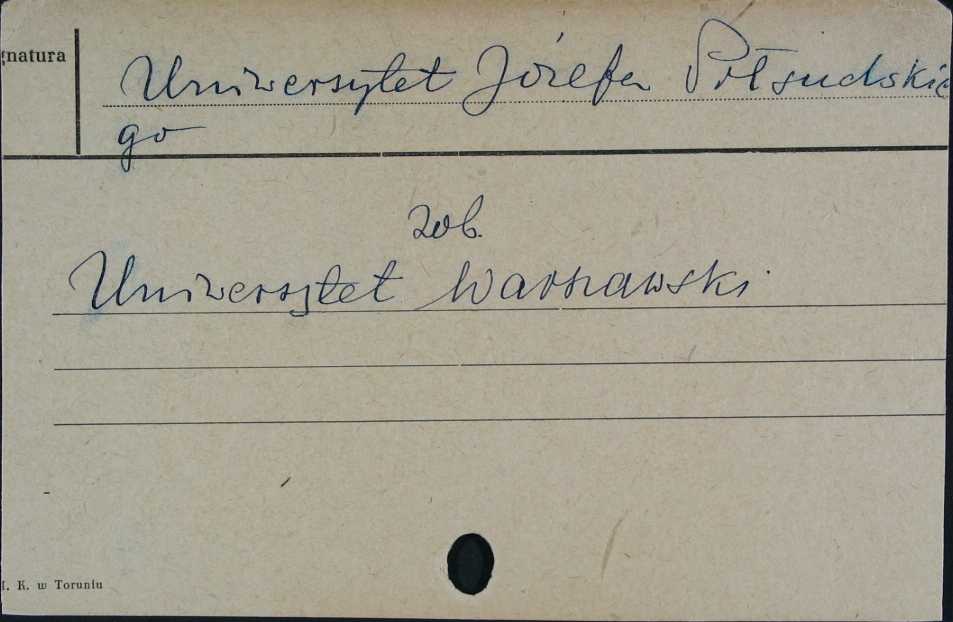 gnatura
Uniwersytet Józefa Piłsudskie
go
zob.
Uniwersytet Warszawski
I. K. w Toruniu